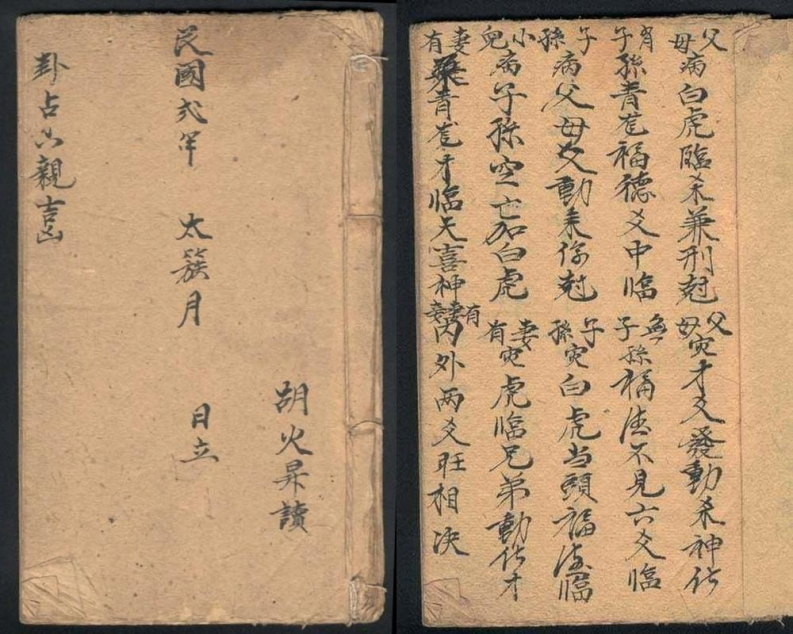 胡火昇讀
民國弍年 太簇月 日立
卦占六親吉凶
父母病白虎臨杀兼刑尅 父母灾才爻發動杀神化
有子孫青龙福德爻中臨 無子孫福德不見六爻臨
子孫病父母爻動来傷尅 子孫灾白虎当頭福德臨
小兒病子孫空亡加白虎 妻有灾虎臨兄弟動化才
妻有青龙才臨天喜神 有妻妾内外两爻旺相决